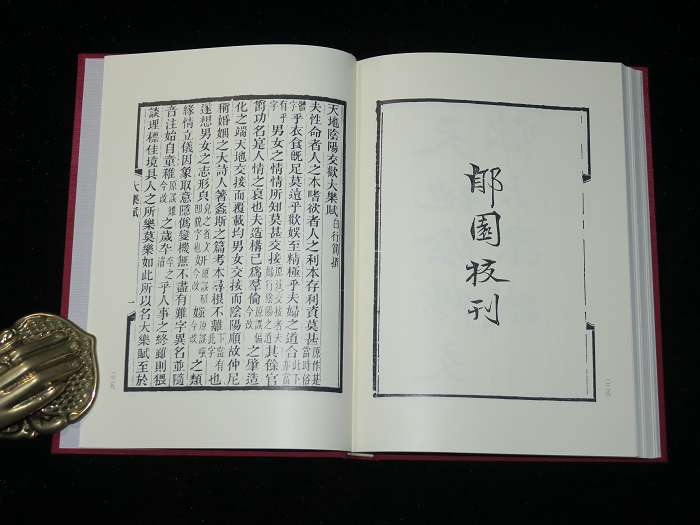 郋園挍刊
天地陰陽交歡大樂賦 白行簡撰
夫性命者人之本嗜欲者人之利本存利資莫甚原作甚當時俗
體乎衣食既足莫遠乎歡娛至精極乎夫婦之道合此下
字男女之情情所知莫甚交接其餘官
爵功名寔人情之衰也夫造構已為羣倫原誤偏今改之肇造
化之端天地交接而覆載均男女交接而陰陽順故仲尼
稱婚姻之大詩人著螽斯之篇考本尋根不離也
遂想男女之志形之類
緣情立儀因象取意隱偽變機無不盡有難字異名並隨
音注始自童稚原誤雉今改之歲卒乎人事之終雖則猥
談理標佳境具人之所樂莫樂如此所以名大樂賦至於
大樂賦
一